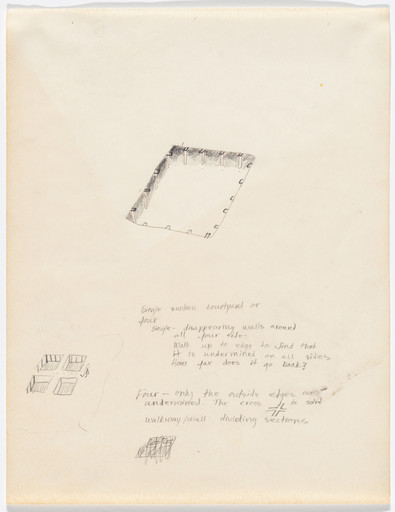 Single sunken courtyard or
four
Single - disappearing walls around
all four sides
Walk up to edge to find that
it is undermined on all sides
How far does it go back?
Four - only the outside edges are
undermined. The cross is solid
walkway/wall dividing sections